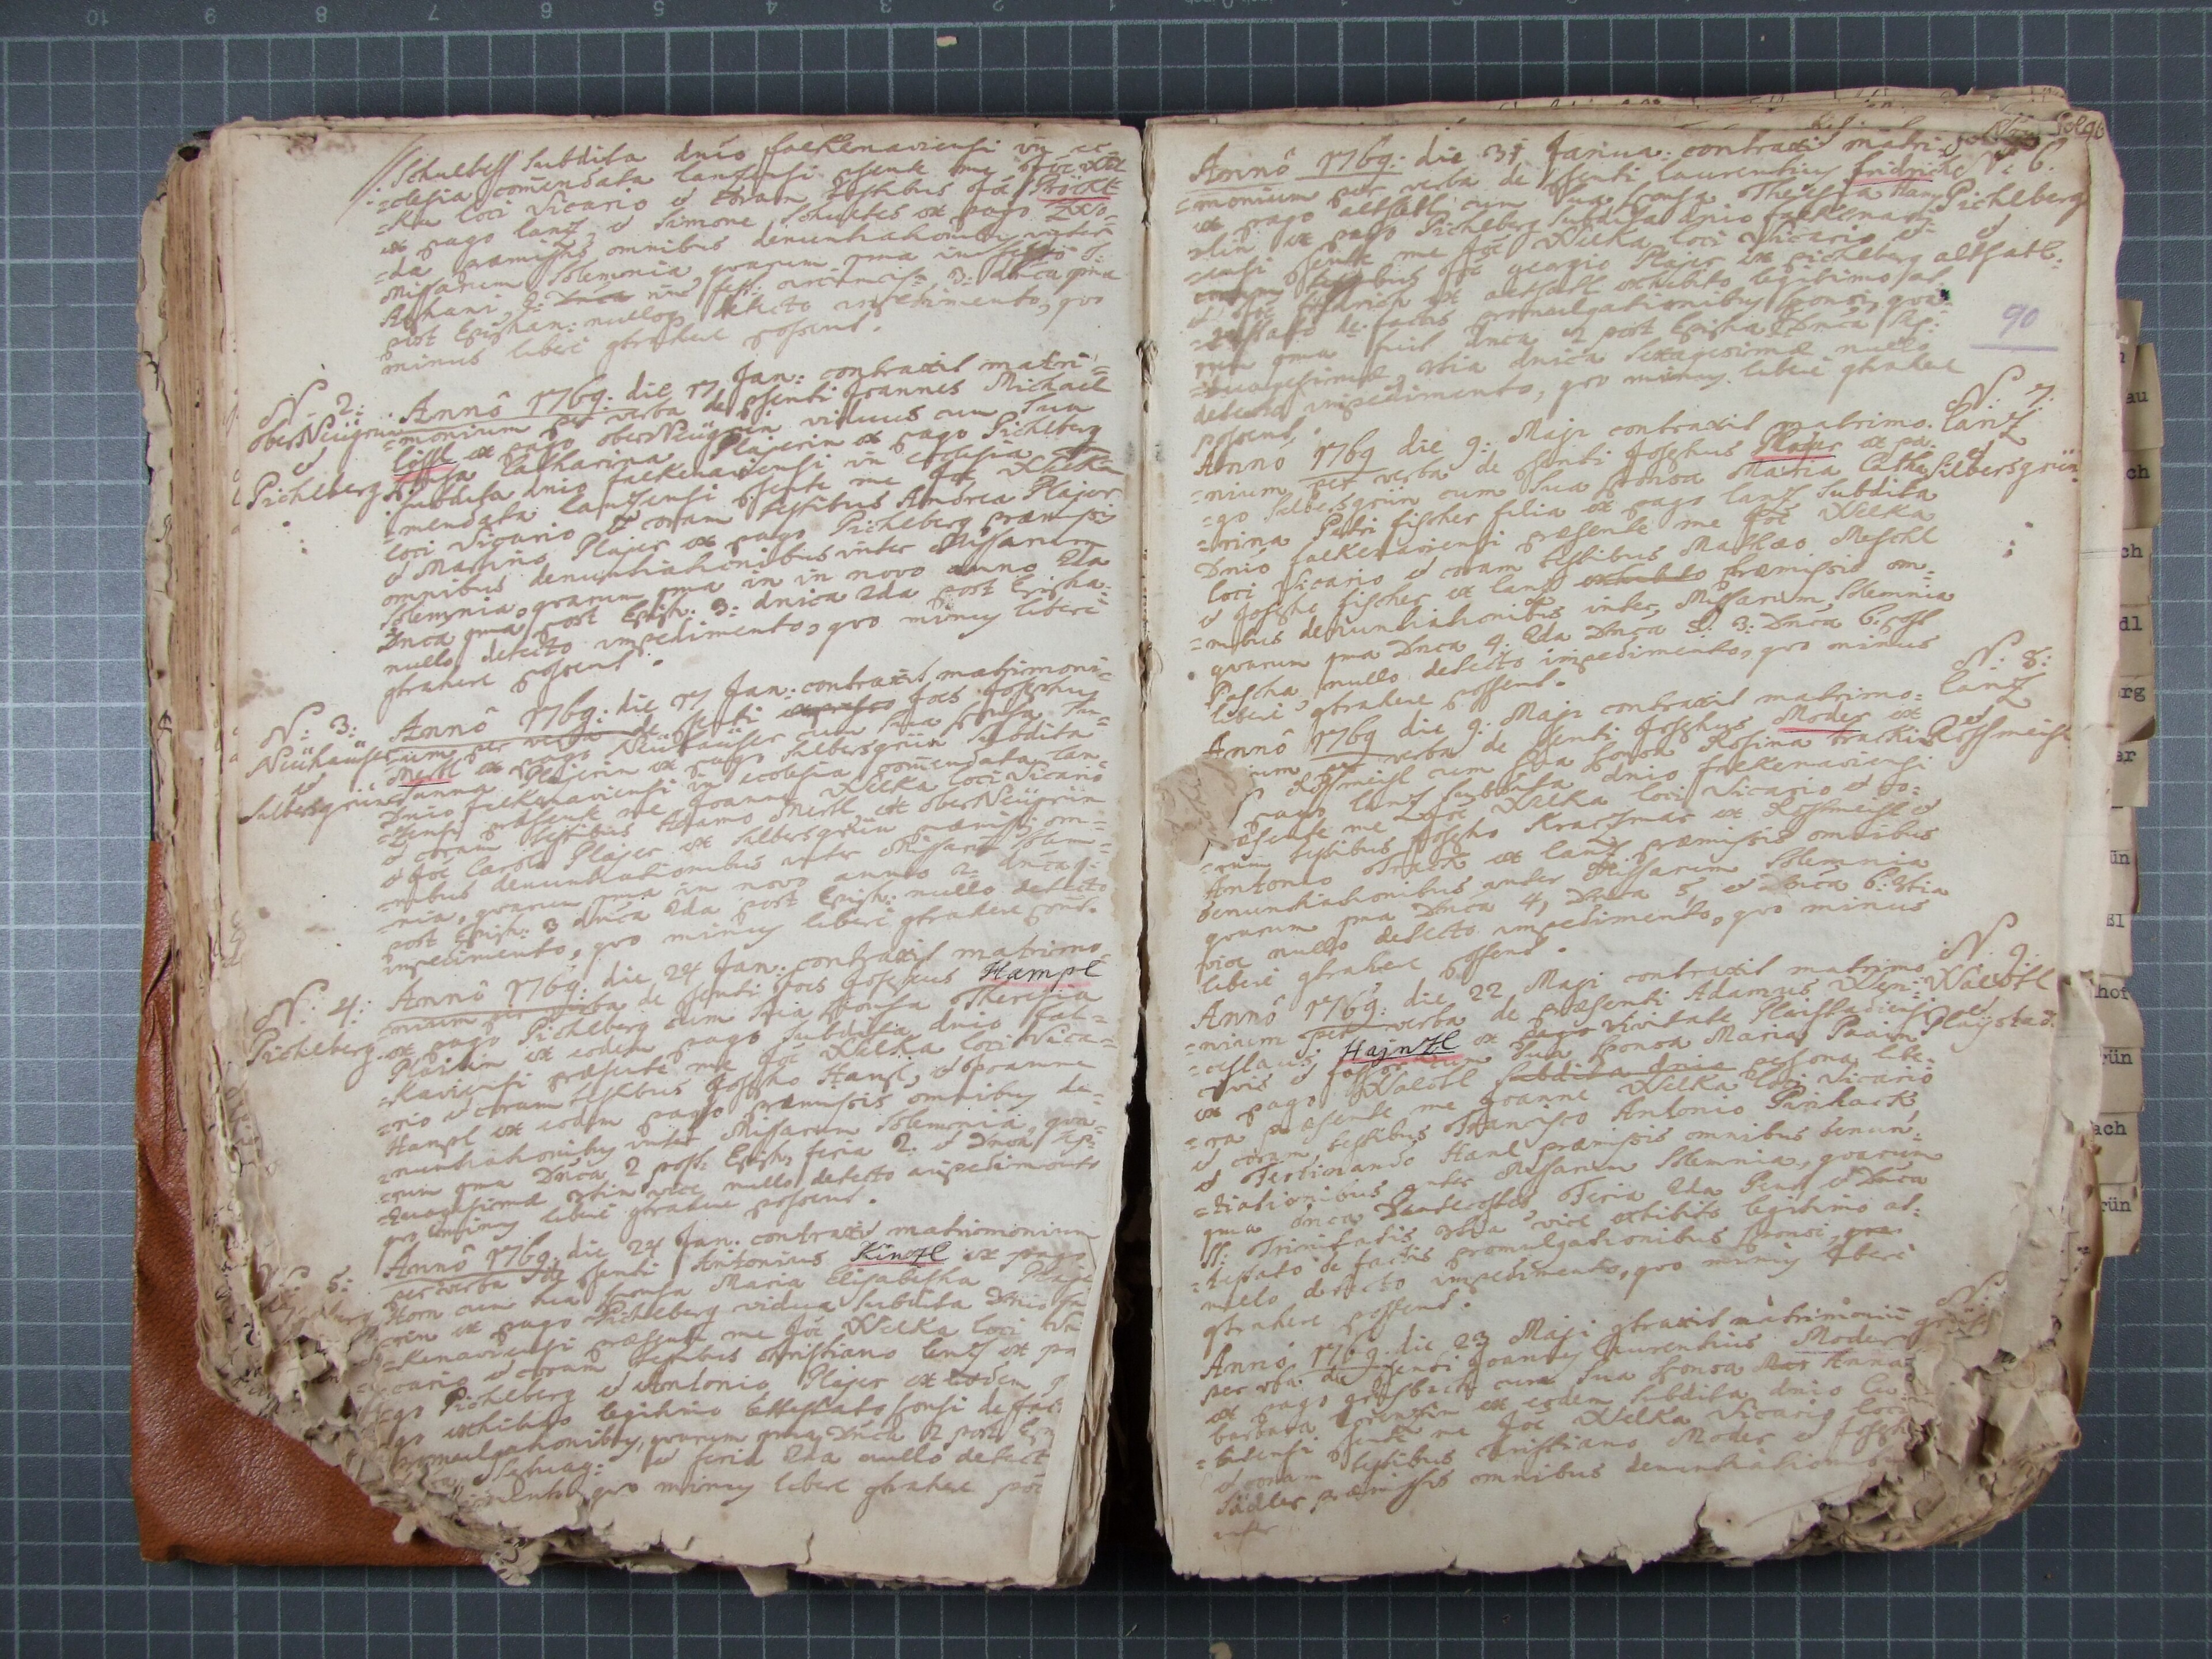 Schulteß Subdita dnio falkenaviensi in ec-
=clesia comendata lanzensi psente me Joe Welka
loci Vicario et coram testibus Joe
ex pago lanz, et Simone Schultes ex pago Zwo-
=da praemissis omnibus denuntiationibus inter
Missarum Solemnia, quarum 1ma in festo S:
post Epiphan: nulloq detecto impedimento, quo
minus liberè gtrahere possent.
N: 2:
oberNeügrün
et
Pichlberg
Annô 1769: die 17 Jan: contraxit matri=
=monium per verba de psenti Joannes Michael
Lößl ex pago oberNeügrün viduus cum Sua
Sponsa Catharina Plajerin ex pago Pichlberg
Subdita dnio falkenaviensi in Ecclesia com-
mendata lanzensi psente me Joe Welka
loci Vicario et coram testibus Andrea Plajer
et Martino Plajer ex pago Pichlberg praemissis
omnibus denuntiationibus inter Missarum
Solemnia, quarum 1ma in in novo anno 2da
Dnca 1ma post Epiph: 3: dnica 2da post Epipha:
nullo detecto impedimento, quo minus liberè
gtrahere possent.
N: 3:
Neühäuser
et
Silbersgrün
Annô 1769: die 17 Jan: contraxit matrimoni=
=um per verba de psenti Joes Josephus
Mertl ex pago Neühäuser cum Sua Sponsa Su=
=sanna Plajerin ex pago Silbersgrün Subdita
Dnio falkenaviensi in ecclesia comendata lan=
=zensi praesente me Joanne Welka loci Vicario
et coram testibus Adamo Mertl ex oberNeügrün
et Joe Carolo Plajer ex Silbersgrün praemissis om=
=nibus denuntiationibus inter Missarum Solem=
=nia, quarum 1ma in novo anno 2: dnica 1:
post Epiph: 3 dnica 2da post Epiph: nullo detecto
impedimento, quo minus liberè gtrahere possent.
N: 4:
Pichlberg.
Annô 1769: die 24 Jan: contraxit matrimo=
=nium per verba de psenti Joes Josephus Hampl
ex pago Pichlberg cum Sua Sponsa Theresia
Plaierin ex eodem pago Subdita dnio fal=
=kaviensi praesente me Joe Welka loci Vica=
=rio et coram testibus Josepho Hampl, et Joanne
Hampl ex eodem pago praemissis omnibus de=
=nuntiationibus inter Missarum Solemnia, qua=
=rum 1ma Dnica 2 post Epiph, feria 2. et Dnca Sep=
=tuagesimae 3tia vice nullo detecto impedimento
quo minus liberè gtrahere possent.
N: 5:
Annô 1769: die 24 Jan: contraxit matrimonium
per verba de psenti Antonius Kinzl ex pago
Horn cum sua sponsa Maria Elisabetha Plaje
=rin ex pago Pichlberg vidua Subdita Dnio fa
=kenaviensi praesente me Joe Welka loci Vi
=cario et coram testibus Christiano lenz ex pa
=go Pichlberg et Antonio Plajer ex eodem
exhibito legitimo attestato Sponsi de fac
promulgationibus, quarum 1ma Dnica 2 post Epi
Septuag: et feria 2da nullo detect
quo minus libere gtrahere
N: 6.
Pichlberg
et
altsatl.
Annô 1769: die 31 Janua: contraxit matri-
=monium per verba de psenti laurentius fridrich
ex pago altsatl cum Sua Sponsa Theresia Ham
=plin ex pago Pichlberg Subdita dnio falkenavi-
=ensi psente me Joe Welka loci Vicario et
coram testibus Joe georgio Plajer ex pichlberg
et Joe fridrich ex altsatl exhibito legitimo at
=testato de factis promulgationibus Sponsi, qua=
rum 1ma fuit Dnca 2 post Epipha Dnca Sep:
=tuagesimae, 3tia dnica Sexagesimae nullo
detecto impedimento, quo minus liberè gtrahere
possent.
90
N: 7:
lanz
et
Silbersgrün
Annô 1769 die 9: Maji contraxit matrimo.
=nium per verba de psenti Josephus Plajer ex pa.
=go Silbersgrün cum Sua sponsa Maria Catha
=rina Petri fischer filia ex pago lanz Subdita
Dnio falkenaviensi praesente me Joe Welka
loci Vicario et coram testibus Mathaeo Meschl
et Josepho fischer ex lanz praemissis om=
=nibus denuntiationibus inter Missarum Solemnia
quarum 1ma Dnca 4: 2da Dnca 5: 3: Dnca 6: post
Pascha nullo detecto impedimento, quo minus
liberè gtrahere possent.
N: 8:
lanz
et
Roßmeisl
Annô 1769 die 9: Maji contraxit matrimo=
nium per verba de psenti Josephus Moder ex
Roßmeisl cum sua sponsa Rosina trackin
pago lanz Subdita dnio falkenaviensi
praesente me Joe Welka loci Vicario et co=
=ram testibus Josepho Kraczmar ex Roßmeisl et
Antonio Track ex lanz praemissis omnibus
denuntiationibus inter Missarum Solemnia
quarum 1ma Dnca 4, Dnca 5, et Dnica 6: 3tia
vice nullo detecto impedimento, quo minus
liberè gtrahere possent.
N. 9:
Waldtl
et
Plaistad:
Annô 1769: die 22 Maji contraxit matrimo
=nium per verba de praesenti Adamus Wen:
=ceslaus Hajnzl ex civitate Plaistadiensi
civis et cum Sua sponsa Maria
ex pago Waldtl subdita dnio persona libe.
=ra praesente me Joanne Welka loci Vicario
et coram testibus Francisco Antonio
et Ferdinando Hanl praemissis omnibus denun,
=tiationibus inter Missarum Solemnia, quarum
1ma dnica Pentecostes Feria 2da Pent, et Dnca
SS: Trinitatis 3tia vice exhibito legitimo at:
=testato de factis promulgationibus Sponsi,
nullo detecto impedimento, quo minus liberè
gtrahere possent.
N:
Annô 1769. die 23 Maji gtraxit matrimoniū
per vba de psenti Joannes laurentius Moder
ex pago grasbach cum Sua sponsa Anna
barbara lorenzin ex eodem Subdita dnio
psente me Joe Welka Vicario loci
et coram testibus Christiano Moder et Joseph
Sadler praemissis omnibus denuntiationi
inter